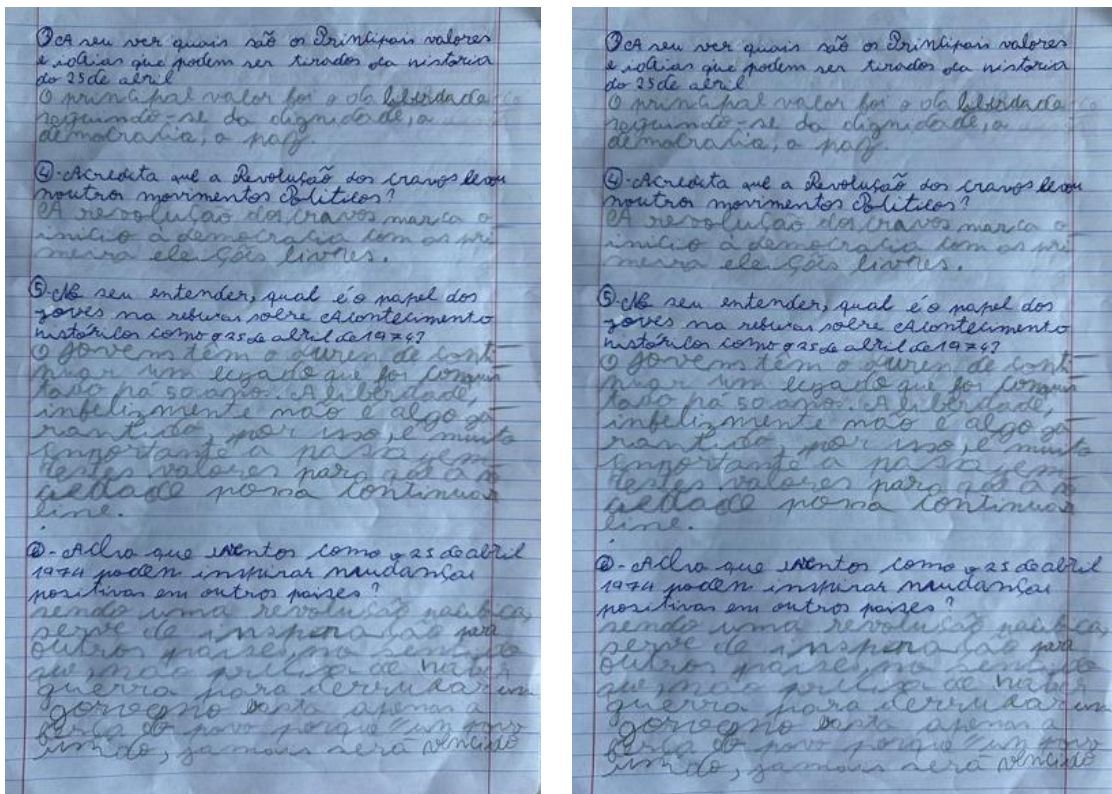 ③ A seu ver quais são os Principais valores
e ideias que podem ser tirados da história
do 25 de abril
O principal valor foi o da liberdade
seguindo-se da dignidade, a
democracia, a paz.
④-Acredita que a Revolução dos cravos levou
noutros movimentos Políticos?
A revolução dos cravos marca o
início à democracia com as pri
meira eleições livres.
⑤- No seu entender, qual é o papel dos
joves na sobre Acontecimento
históricos como o 25 de abril de 1974?
O jovens têm o de conti
nuar um legado que foi conquis
tado há 50 anos. A liberdade,
infelizmente não é algo ga
rantido, por isso, é muito
importante a passagem
destes valores para que a so
ciedade possa continuar
livre.
⑥- Acha que eventos como o 25 de abril
1974 poden inspirar mudanças
positivas em outros países?
sendo uma revolução pacifica,
serve de inspiração para
outros paises, no sentido
que não precisa de haver
guerra para derrubar um
governo basta apenas a
força do povo porque "um povo
unido, jamais será vencido
③ A seu ver quais são os Principais valores
e ideias que podem ser tirados da história
do 25 de abril
O principal valor foi o da liberdade
seguindo-se da dignidade, a
democracia, a paz.
④-Acredita que a Revolução dos cravos levou
noutros movimentos Políticos?
A revolução dos cravos marca o
início à democracia com as pri
meira eleições livres.
⑤- No seu entender, qual é o papel dos
joves na sobre Acontecimento
históricos como o 25 de abril de 1974?
O jovens têm o de conti
nuar um legado que foi conquis
tado há 50 anos. A liberdade,
infelizmente não é algo ga
rantido, por isso, é muito
importante a passagem
destes valores para que a so
ciedade possa continuar
livre.
⑥- Acha que eventos como o 25 de abril
1974 poden inspirar mudanças
positivas em outros países?
sendo uma revolução pacifica,
serve de inspiração para
outros paises, no sentido
que não precisa de haver
guerra para derrubar um
governo basta apenas a
força do povo porque "um povo
unido, jamais será vencido